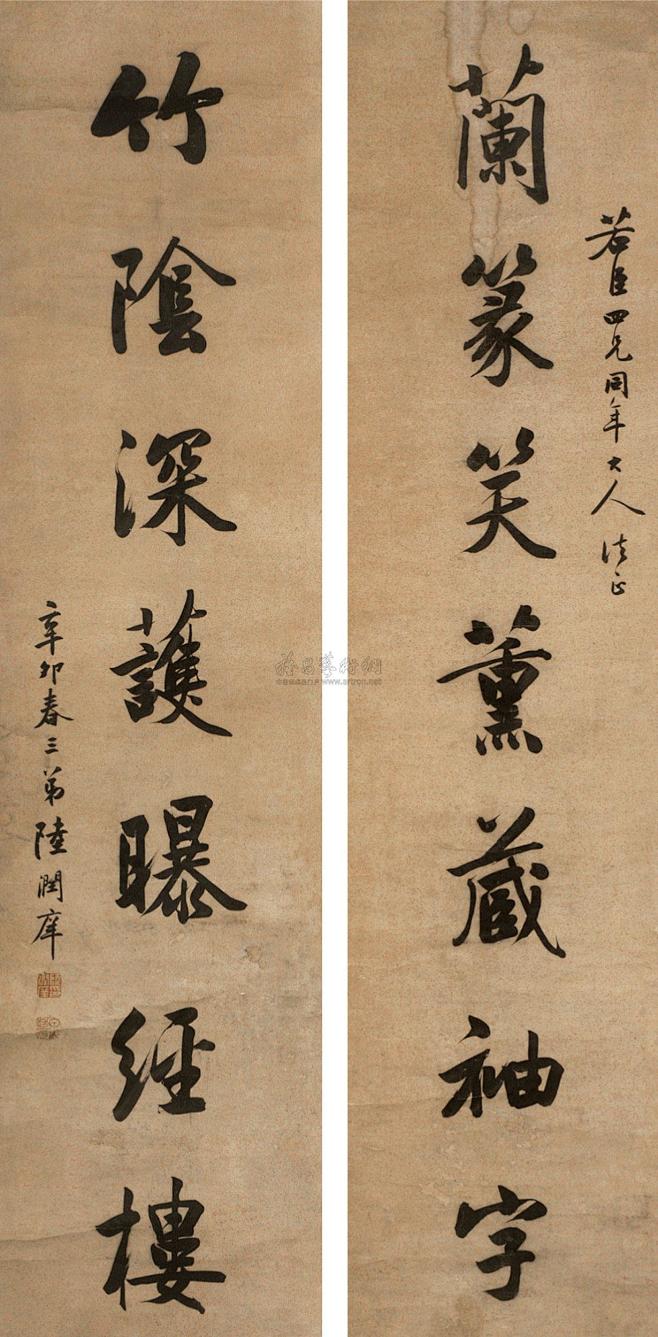 若臣四兄同年大人法正
蘭篆笑薰藏袖字
竹陰深護曝經樓
辛卯春三弟陸潤庠
www.artron.net